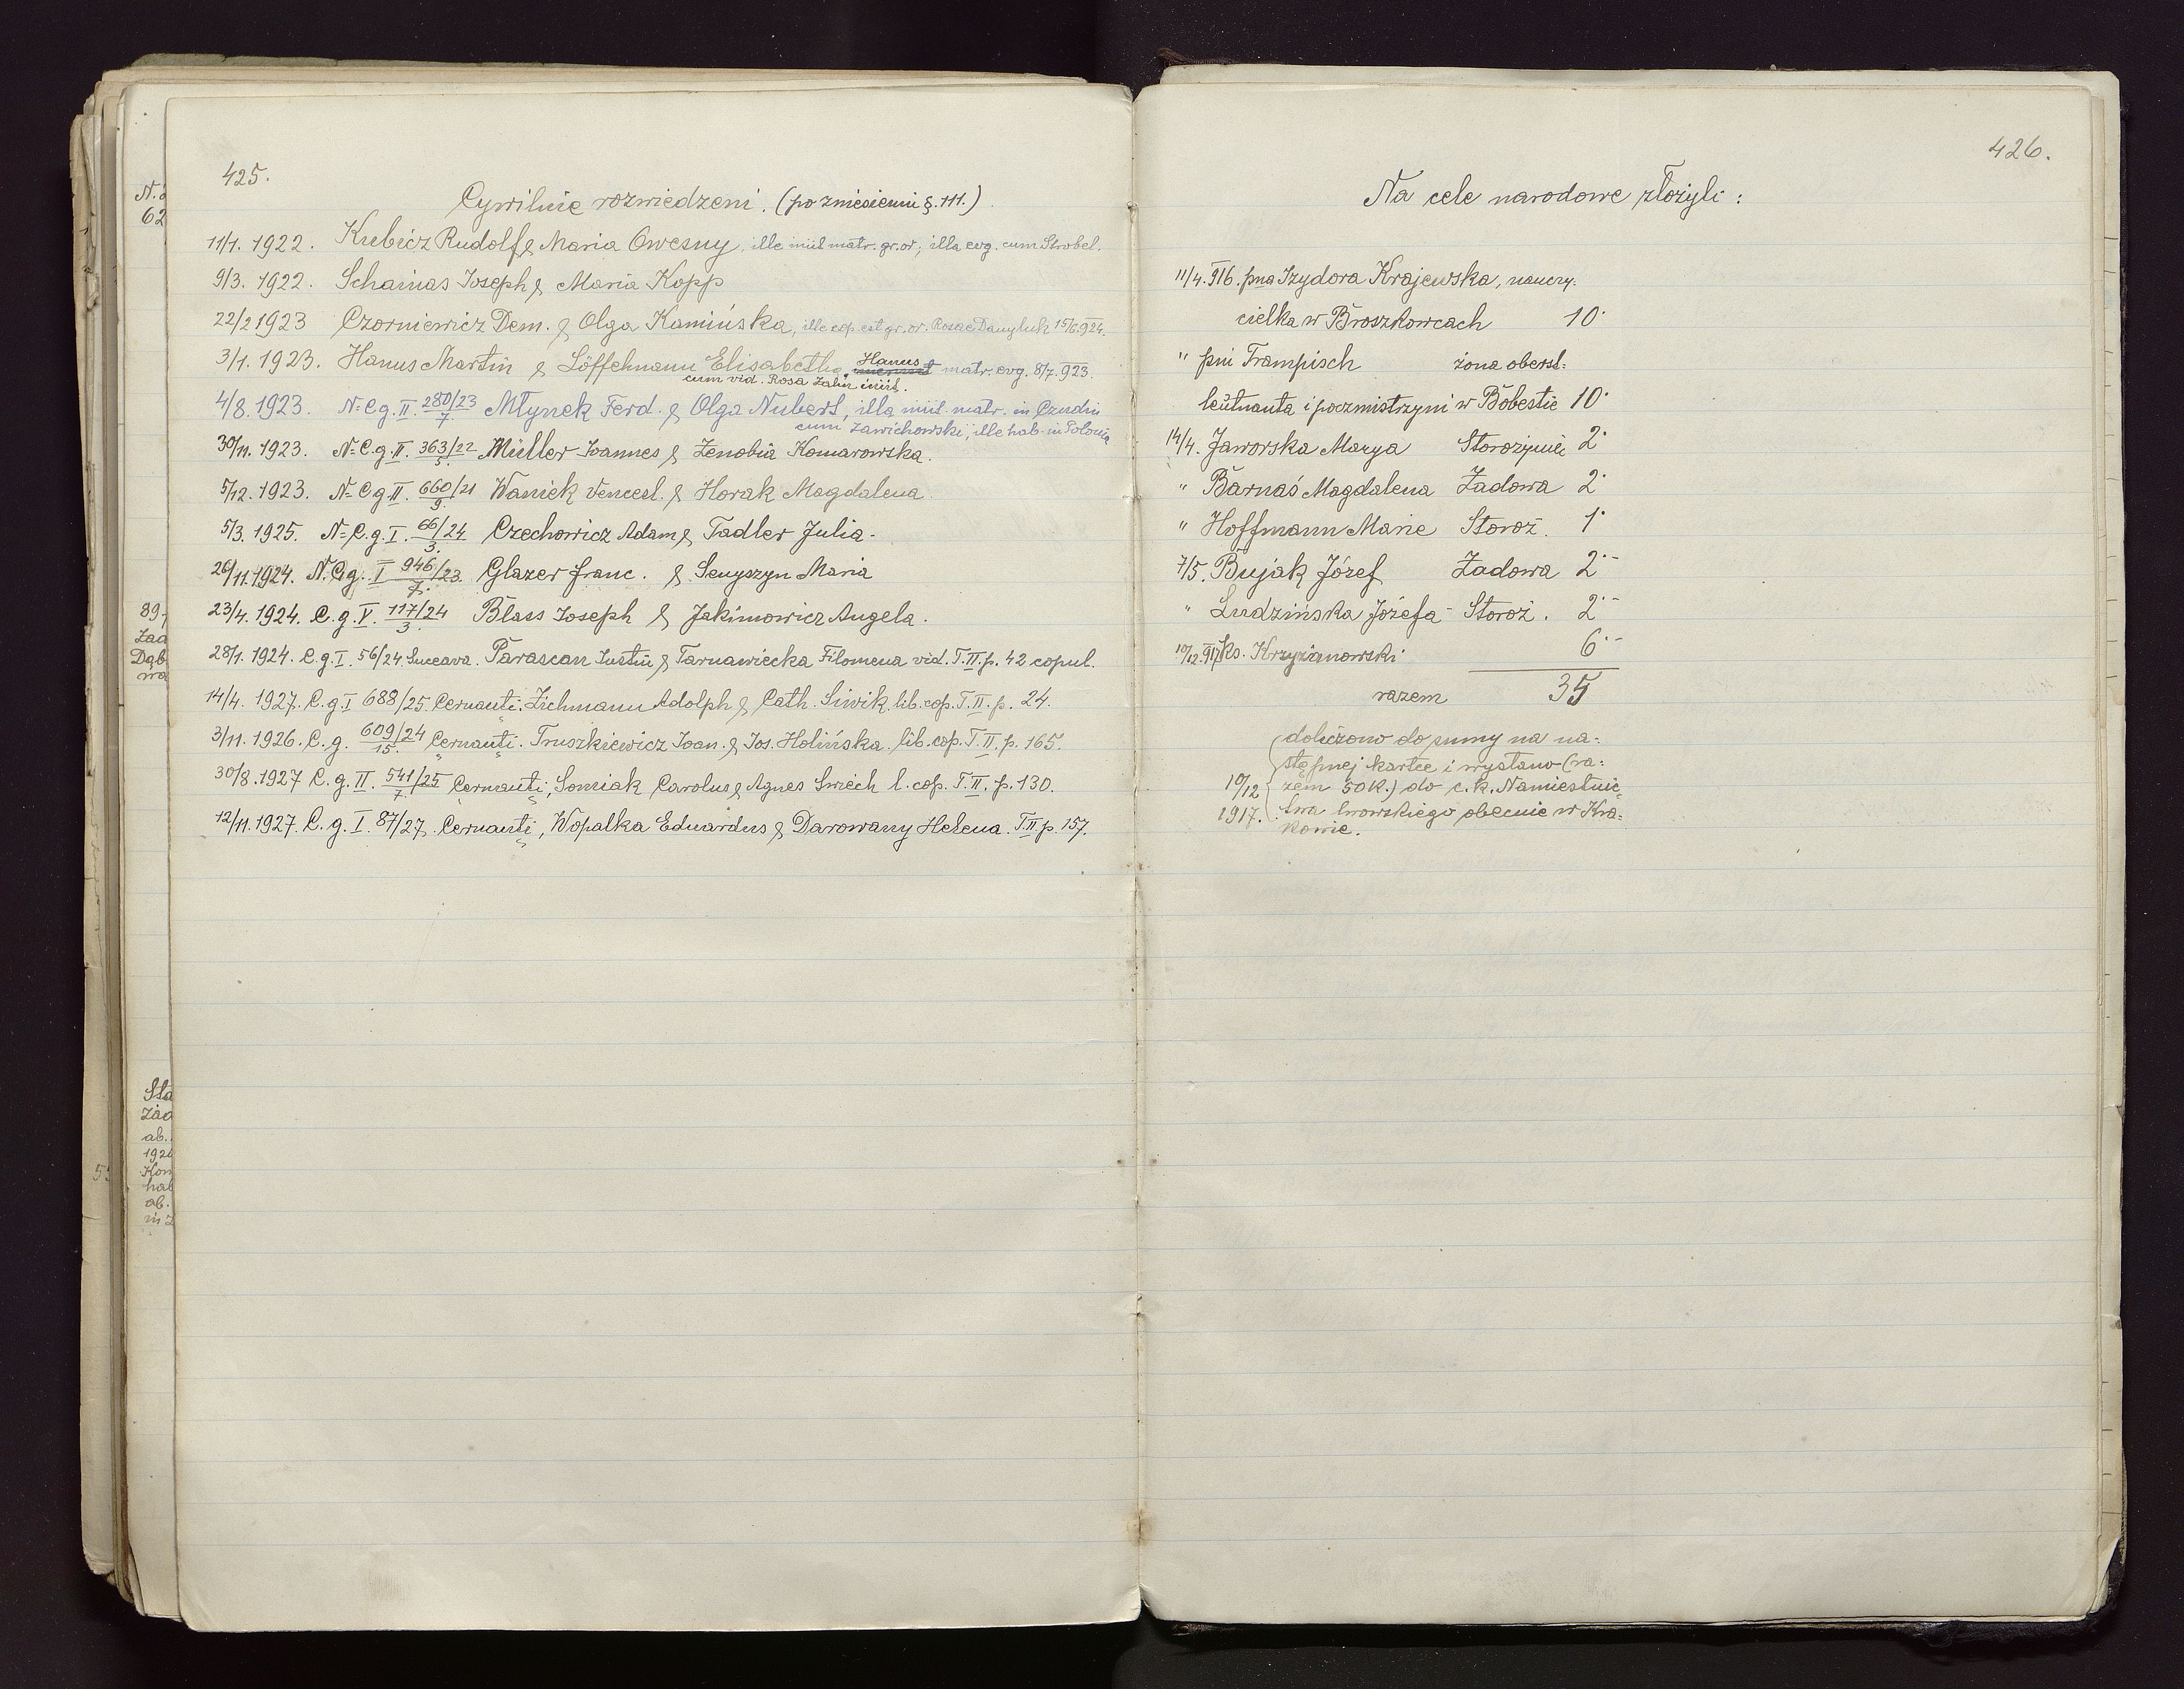 425.
Cywilnie rozwiedzeni. (po zniesieniu §. 111.)
11/1. 1922. Kubicz Rudolf & Maria Owesny, ille iniit matr. gr. or; illa evg. cum Strobel.
9/3. 1922. Schainas Joseph & Maria Kopp
22/2 1923 Czorniewicz Dem. & Olga Kamińska, ille cop. est gr. or. Rosae Danyluk 15/6.924.
3/1. 1923. Hanus Martin & Löffelmann Elisabeth, Hanus matr. evg. 8/7. 923.
cum vid. Rosa Zahn iniit.
4/8. 1923. N= C g. II. 280/23 7 Młynek Ferd. & Olga Nubert, illa iniit matr. in Czudin
cum Zawichowski, ille hab. in Polonia
30/11. 1923. N= C. g. II. 363/22 5. Müller Joannes & Zenobia Komarowska.
5/12. 1923. N= C g. II. 660/21 9. Waniek Vencesl. & Horak Magdalena.
5/3. 1925. N= C. g. I. 66/24 3. Czechowicz Adam & Tadler Julia.
26/11. 1924. N. C. g. I 946/23 7. Glazer Franc. & Senyszyn Maria
23/4. 1924. C. g. V. 117/24 3. Blass Joseph & Jakimowicz Angela.
28/1. 1924. C. g. I. 56/24 Suceava. Parascan Justin & Tarnawiecka Filomena vid. T. II. p. 42 copul.
14/4. 1927. C. g. I 688/25. Cernauți. Zichmann Adolph & Cath. Siwik. lib. cop. T. II. p. 24.
3/11. 1926. C. g. 609/24 15. Cernăuți. Truszkiewicz Joan. & Jos. Holińska. lib. cop. T. II. p. 165.
30/8. 1927 C. g. II. 541/25 7. Cernăuți, Somiak Carolus & Agnes Swiech l. cop. T. II. p. 130.
12/11. 1927. C. g. I. 87/27. Cernauți, Wopalka Eduardus & Darowany Helena. T. II p. 157.
426.
Na cele narodowe złożyli:
11/4. 916. pna Izydora Krajewska, nauczy-
cielka w Broszkowcach 10·
" pni Trampisch żona oberst-
leutnanta i poczmistrzyni w Bobestie 10·
14/4. Jaworska Marya Storożynic 2·
" Barnaś Magdalena Zadowa 2·
" Hoffmann Marie Storoż. 1·
7/5. Bujak Józef Zadowa 2·-
" Ludzińska Józefa Storoż. 2·-
10/12. 917 ks. Krzyżanowski 6·-
razem 35
doliczono do sumy na na-
stępnej kartce i wysłano (ra-
10/12 zem 50 K.) do c. k. Namiestnic-
1917. twa lwowskiego obecnie w Kra-
kowie.
N.
62
89
Zad
Dąb
wa
Sta
Zad
ab.
192
Kom
hab
ab.
in Z